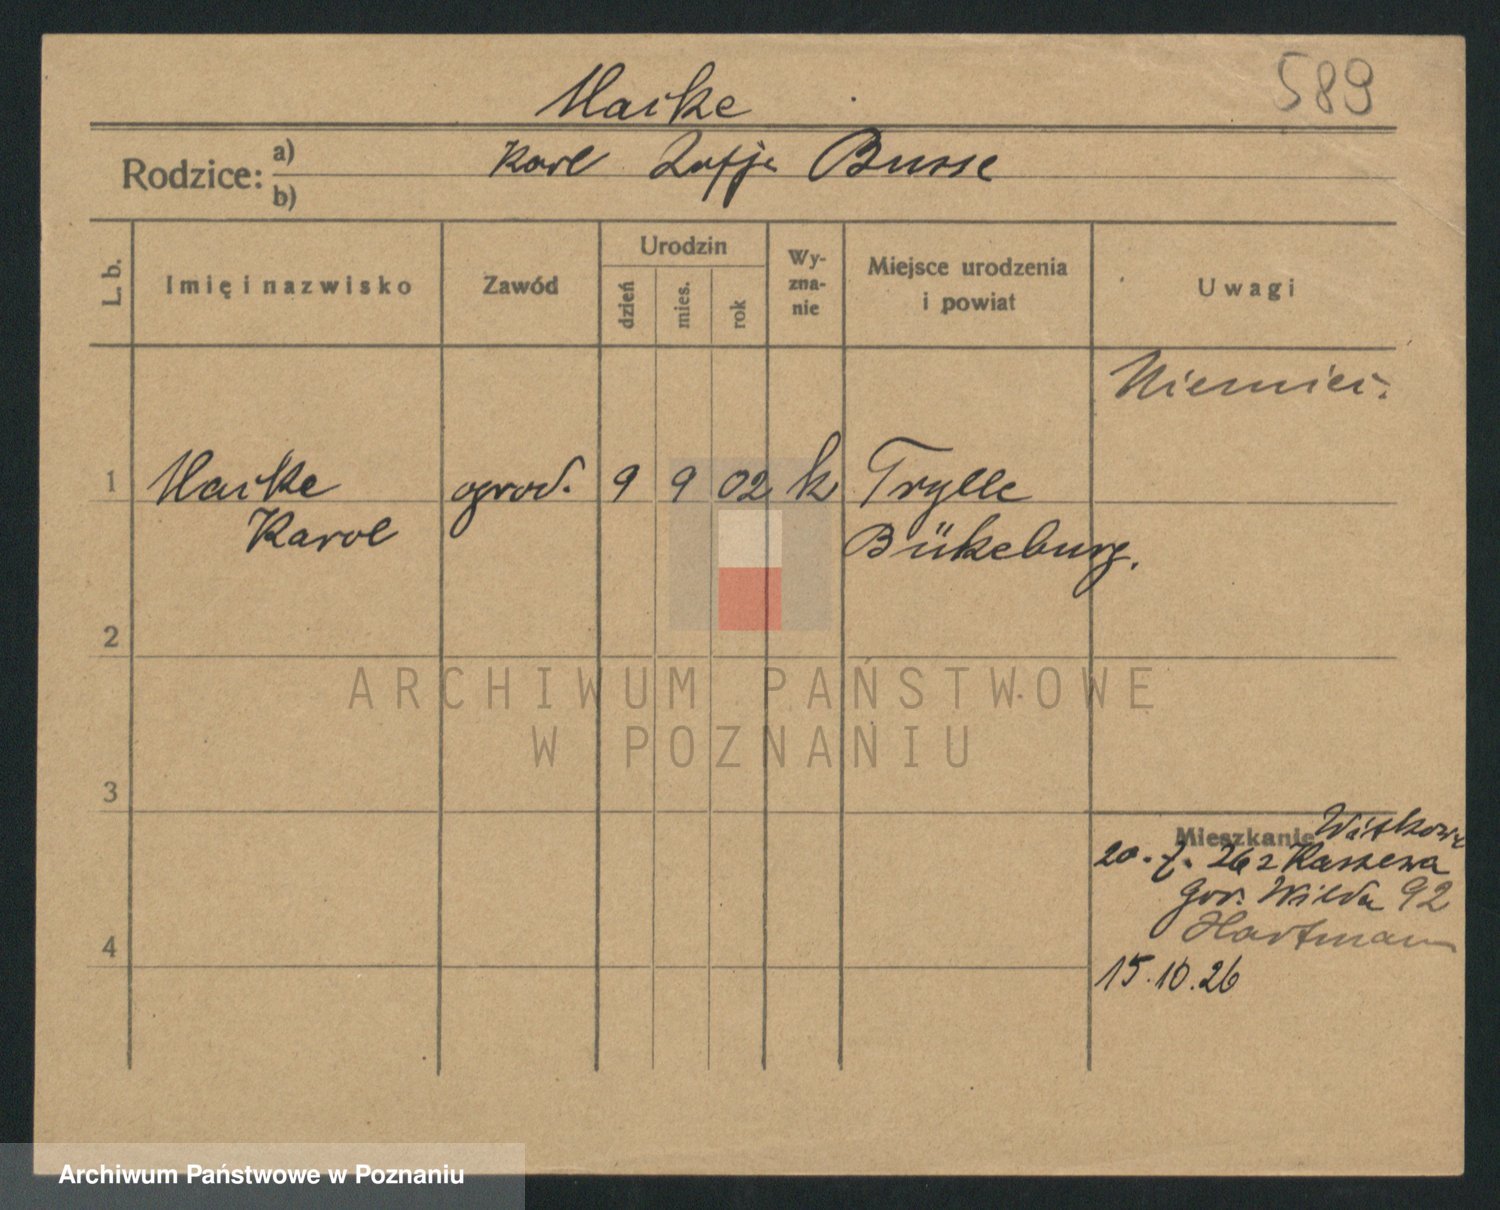 589
Maike
Rodzice: a) Karl Zofja Busse
b)
L. b. Imię i nazwisko Zawód Urodzin dzień mies. rok Wy-zna-nie Miejsce urodzenia i powiat Uwagi
Niemiec.
1 Maike ogrod. 9 9 02 k Trylle
Karol Bükeburg.
2
ARCHIWUM PAŃSTWOWE
W POZNANIU
3
Mieszkanie Witkowo
20.7.26 z Raszewa
Gór. Wilda 92
Hartmann
4
15.10.26
Archiwum Państwowe w Poznaniu